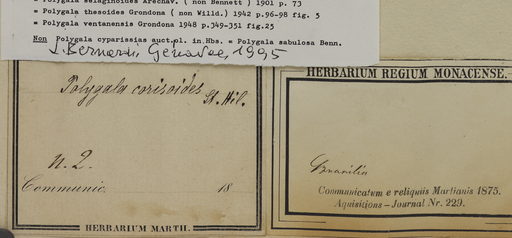 = Polygala selaginoides Arechav. ( non Bennett ) 1901 p. 73
= Polygala thesoides Grondona ( non Willd.) 1942 p.96-98 fig. 5
= Polygala ventanensis Grondona 1948 p.349-351 fig.25
Non Polygala cyparissias auct.pl. in.Hbs. = Polygala sabulosa Benn.
L. Bernardi, Genève, 1995
Polygala corisoides
St. Hil.
n. 2.
Communic. 18
HERBARIUM MARTII.
HERBARIUM REGIUM MONACENSE.
Brasilia
Communicatum e reliquiis Martianis 1875.
Aquisitions - Journal Nr. 229.